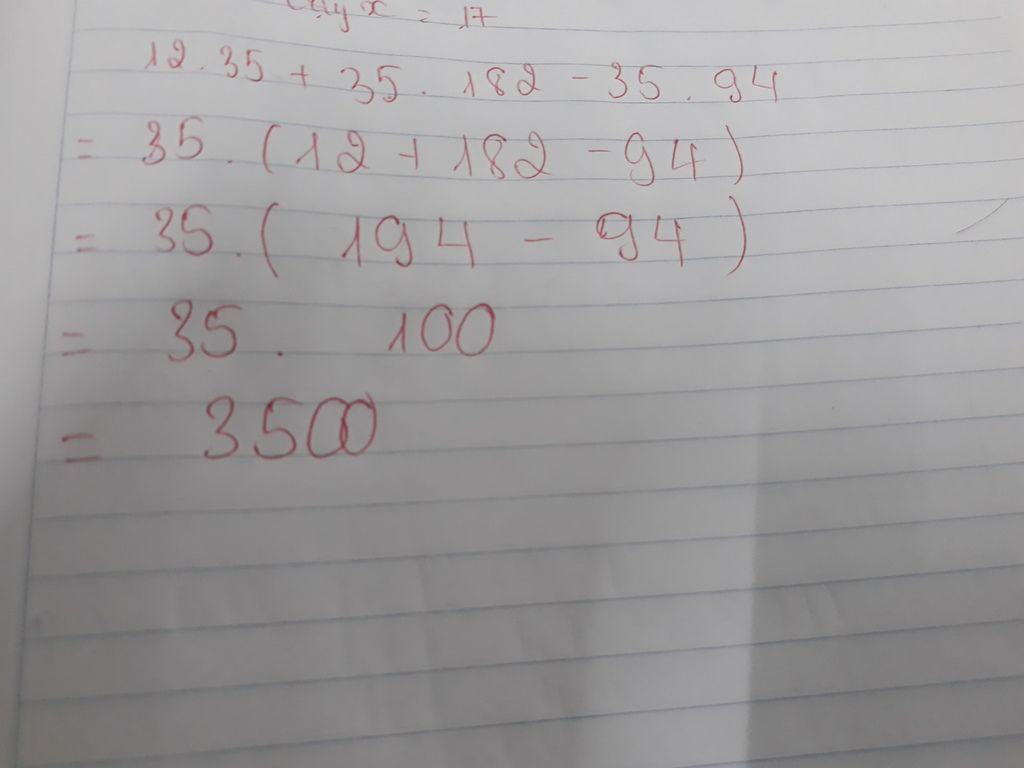 x = 17
12.35 + 35. 182 - 35. 94
= 35. (12 + 182 - 94)
= 35. ( 194 - 94 )
= 35. 100
= 3500